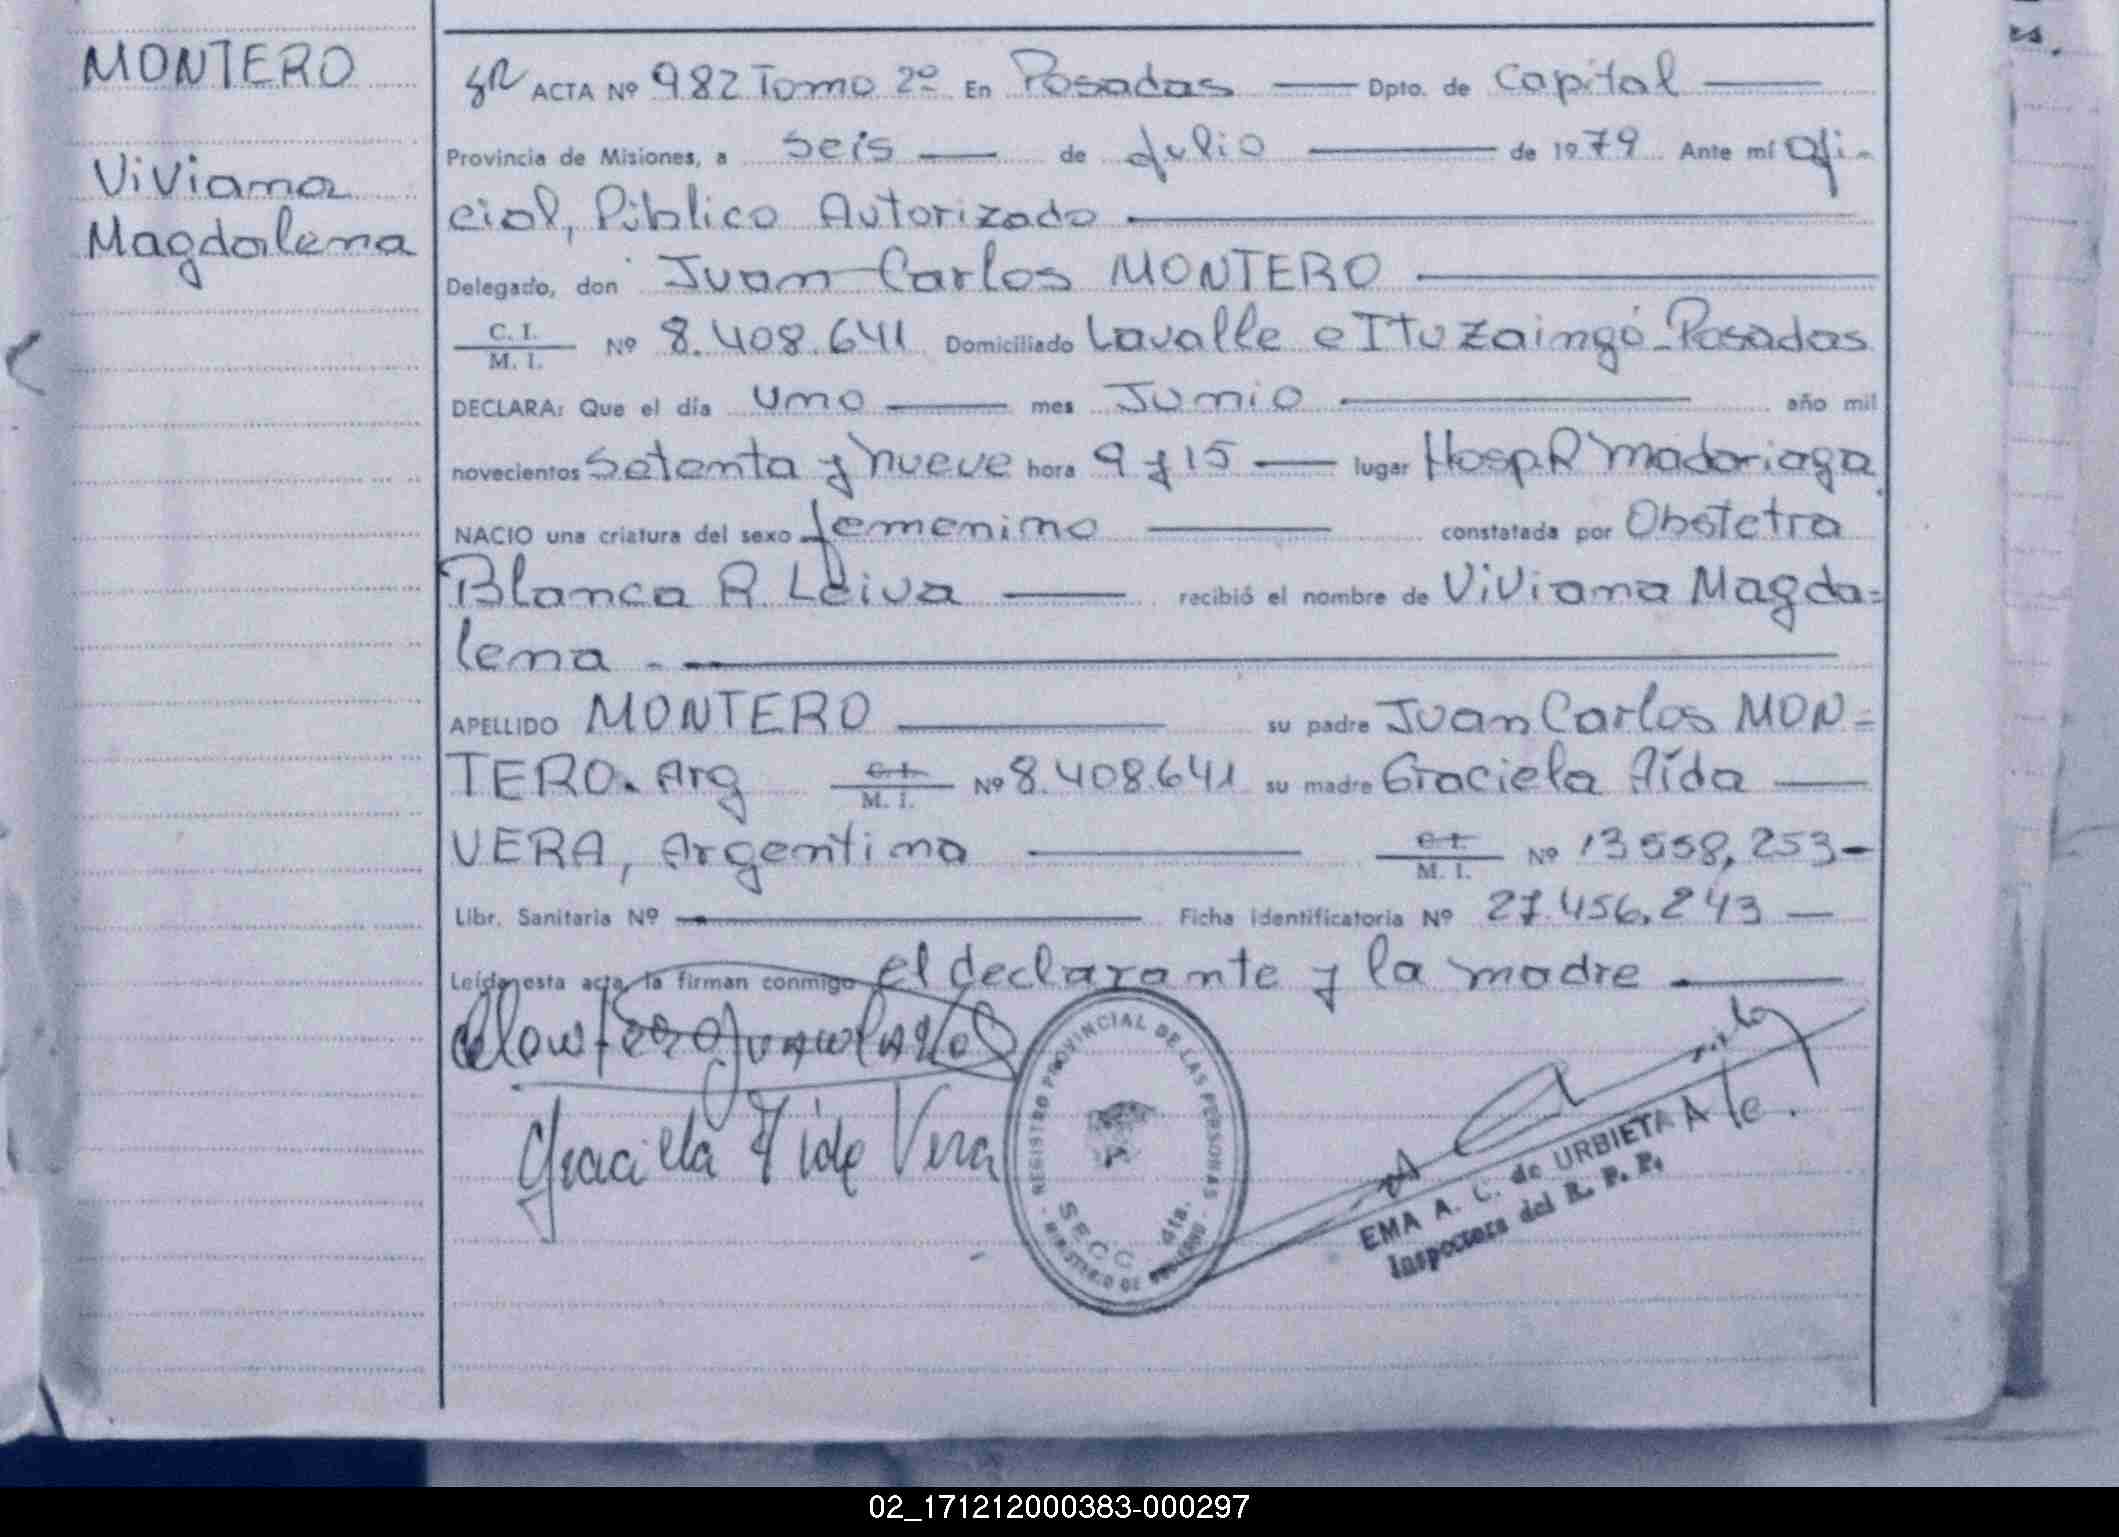 MONTERO
Viviana
Magdalena
ACTA Nº 982 Tomo 2º En Posadas Dpto. de Capital
Provincia de Misiones, a seis de Julio de 1979 Ante mí Ofi-
cial, Público Autorizado
Delegado, don Juan Carlos MONTERO
C. I. / M. I. Nº 8.408.641 Domiciliado Lavalle e Ituzaingó - Posadas
DECLARA: Que el día uno mes Junio año mil
novecientos setenta y nueve hora 9 y 15 lugar Hosp. R Madariaga
NACIO una criatura del sexo femenino constatada por Obstetra
Blanca R. Leiva recibió el nombre de Viviana Magda=
lena -
APELLIDO MONTERO su padre Juan Carlos MON=
TERO. Arg C. I. / M. I. Nº 8.408.641 su madre Graciela Aída
VERA, Argentina C. I. / M. I. Nº 13558,253-
Libr. Sanitaria Nº Ficha identificatoria Nº 27.456.243
Leída esta acta, la firman conmigo el declarante y la madre
Montero Juan Carlos
Graciela Aída Vera
REGISTRO PROVINCIAL DE LAS PERSONAS
SECC. 4ta.
MINISTERIO DE GOBIERNO
EMA A. C. de URBIETA
Inspectora del R. P. P.
es.
02_171212000383-000297